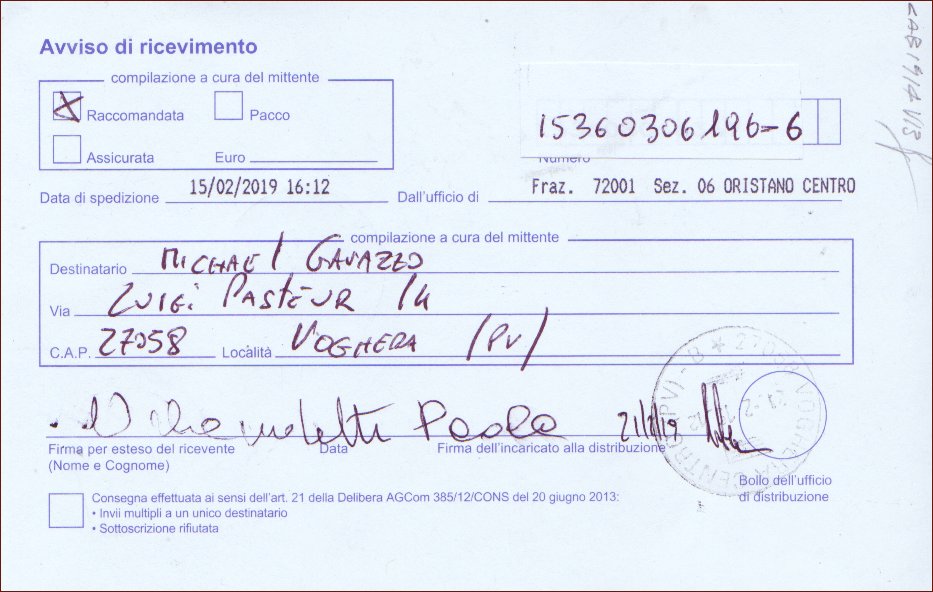 Avviso di ricevimento
compilazione a cura del mittente
X Raccomandata Pacco
Assicurata Euro
15360306196-6
Numero
Data di spedizione 15/02/2019 16:12 Dall'ufficio di Fraz. 72001 Sez. 06 ORISTANO CENTRO
compilazione a cura del mittente
Destinatario MICHAEL GAVAZZO
Via LUIGI PASTEUR 14
C.A.P. 27058 Località VOGHERA (PV)
Paola 21/2/19
Firma per esteso del ricevente Data Firma dell'incaricato alla distribuzione
(Nome e Cognome)
Bollo dell'ufficio
di distribuzione
Consegna effettuata ai sensi dell'art. 21 della Delibera AGCom 385/12/CONS del 20 giugno 2013:
• Invii multipli a un unico destinatario
• Sottoscrizione rifiutata